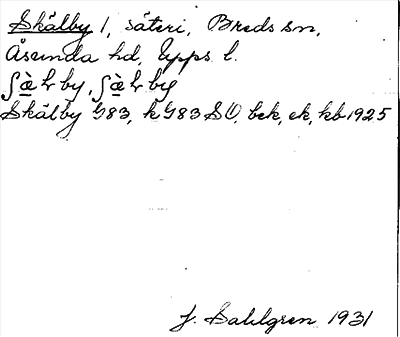 Skälby 1, säteri, Breds sn,
Åsunda hd, Upps. l.
Skälby G83, k G83 SO, bek, ek, kb 1925
J. Sahlgren 1931